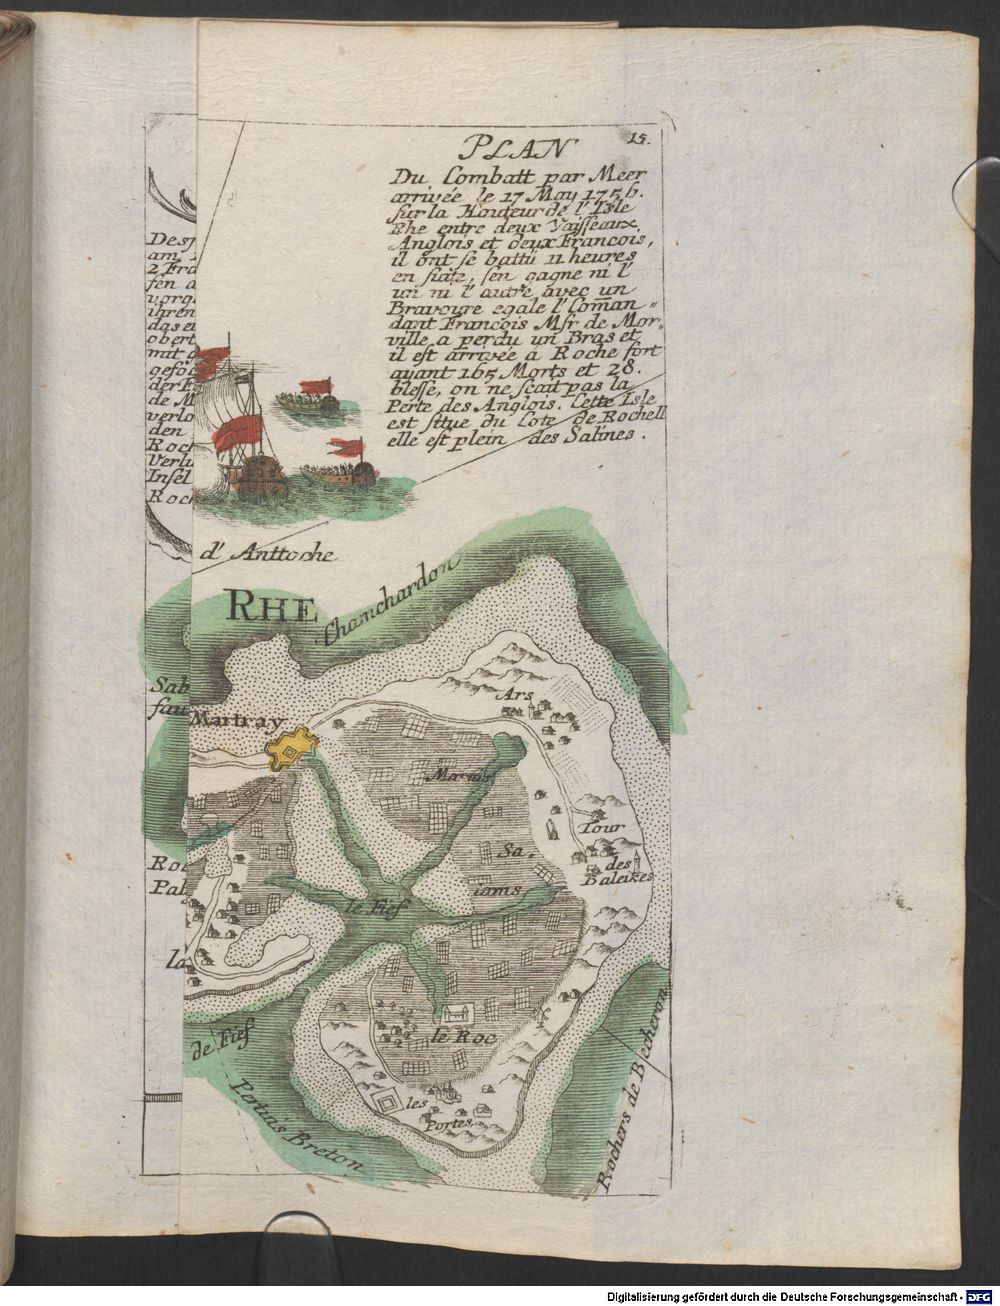 15.
PLAN
Du Combatt par Meer
arrivée le 17 May 1756.
sur la Hauteur de l'Isle
Rhe entre deux Vaisseaux
Anglois et deux Francois,
il ont se battü 11 heures
en suite, sen gagne ni l'
un ni l'autre avec un
Bravoure egale l'Coman„
dant Francois Msr de Mor,
ville a perdu un Bras et
il est arrivée a Roche fort
ayant 165 Morts et 28.
blesse, on ne scait pas la
Perte des Anglois. Cette Isle
est situe du Cote de Rochell
elle est plein des Salines.
Desj
am
2 Fra
fen a
vorg
ihren
das er
obert
mit g
gefoc
der F
de M
verlo
den
Roch
Verlu
Insel
Roch
d'Anttoche
RHE
Chanchardon
Sab
Martray
Ars
Tour
des
Baleizes
Sa.
le Fief
la
de Fief
le Roc
les
Portes
Pertuis Breton
Rochers de Becheron
Digitalisierung gefördert durch die Deutsche Forschungsgemeinschaft - DFG